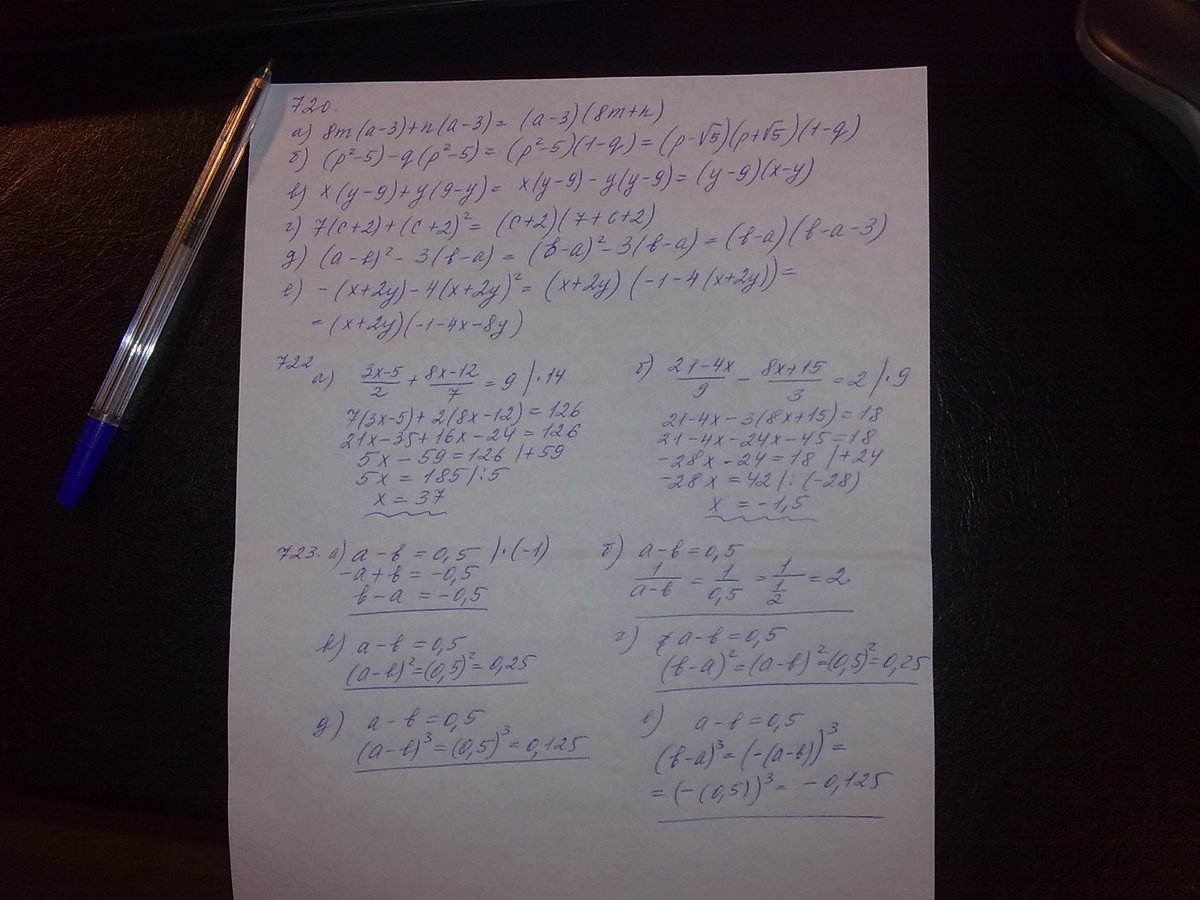 720.
а) 8m(a-3)+n(a-3)= (a-3)(8m+n)
б) (p²-5)-q(p²-5)=(p²-5)(1-q)=(p-√5)(p+√5)(1-q)
в) x(y-9)+y(9-y)= x(y-9)-y(y-9)=(y-9)(x-y)
г) 7(c+2)+(c+2)²= (c+2)(7+c+2)
д) (a-b)²-3(b-a)=(b-a)²-3(b-a)=(b-a)(b-a-3)
е) -(x+2y)-4(x+2y)²=(x+2y)(-1-4(x+2y))=
=(x+2y)(-1-4x-8y)
722
а) (3x-5)/2 + (8x-12)/7 = 9 |·14
7(3x-5)+2(8x-12)=126
21x-35+16x-24=126
5x-59=126 |+59
5x=185 |:5
x=37
б) (21-4x)/9 - (8x+15)/3 =2 |·9
21-4x-3(8x+15)=18
21-4x-24x-45=18
-28x-24=18 |+24
-28x=42 |:(-28)
x =-1,5
723. а) a-b=0,5 |·(-1)
-a+b=-0,5
b-a=-0,5
б) a-b=0,5
1/(a-b) = 1/0,5 = 1/(1/2) = 2
в) a-b=0,5
(a-b)²=(0,5)²=0,25
г) a-b=0,5
(b-a)²=(a-b)²=(0,5)²=0,25
д) a-b=0,5
(a-b)³=(0,5)³=0,125
е) a-b=0,5
(b-a)³=(-(a-b))³=
=(-(0,5))³= -0,125